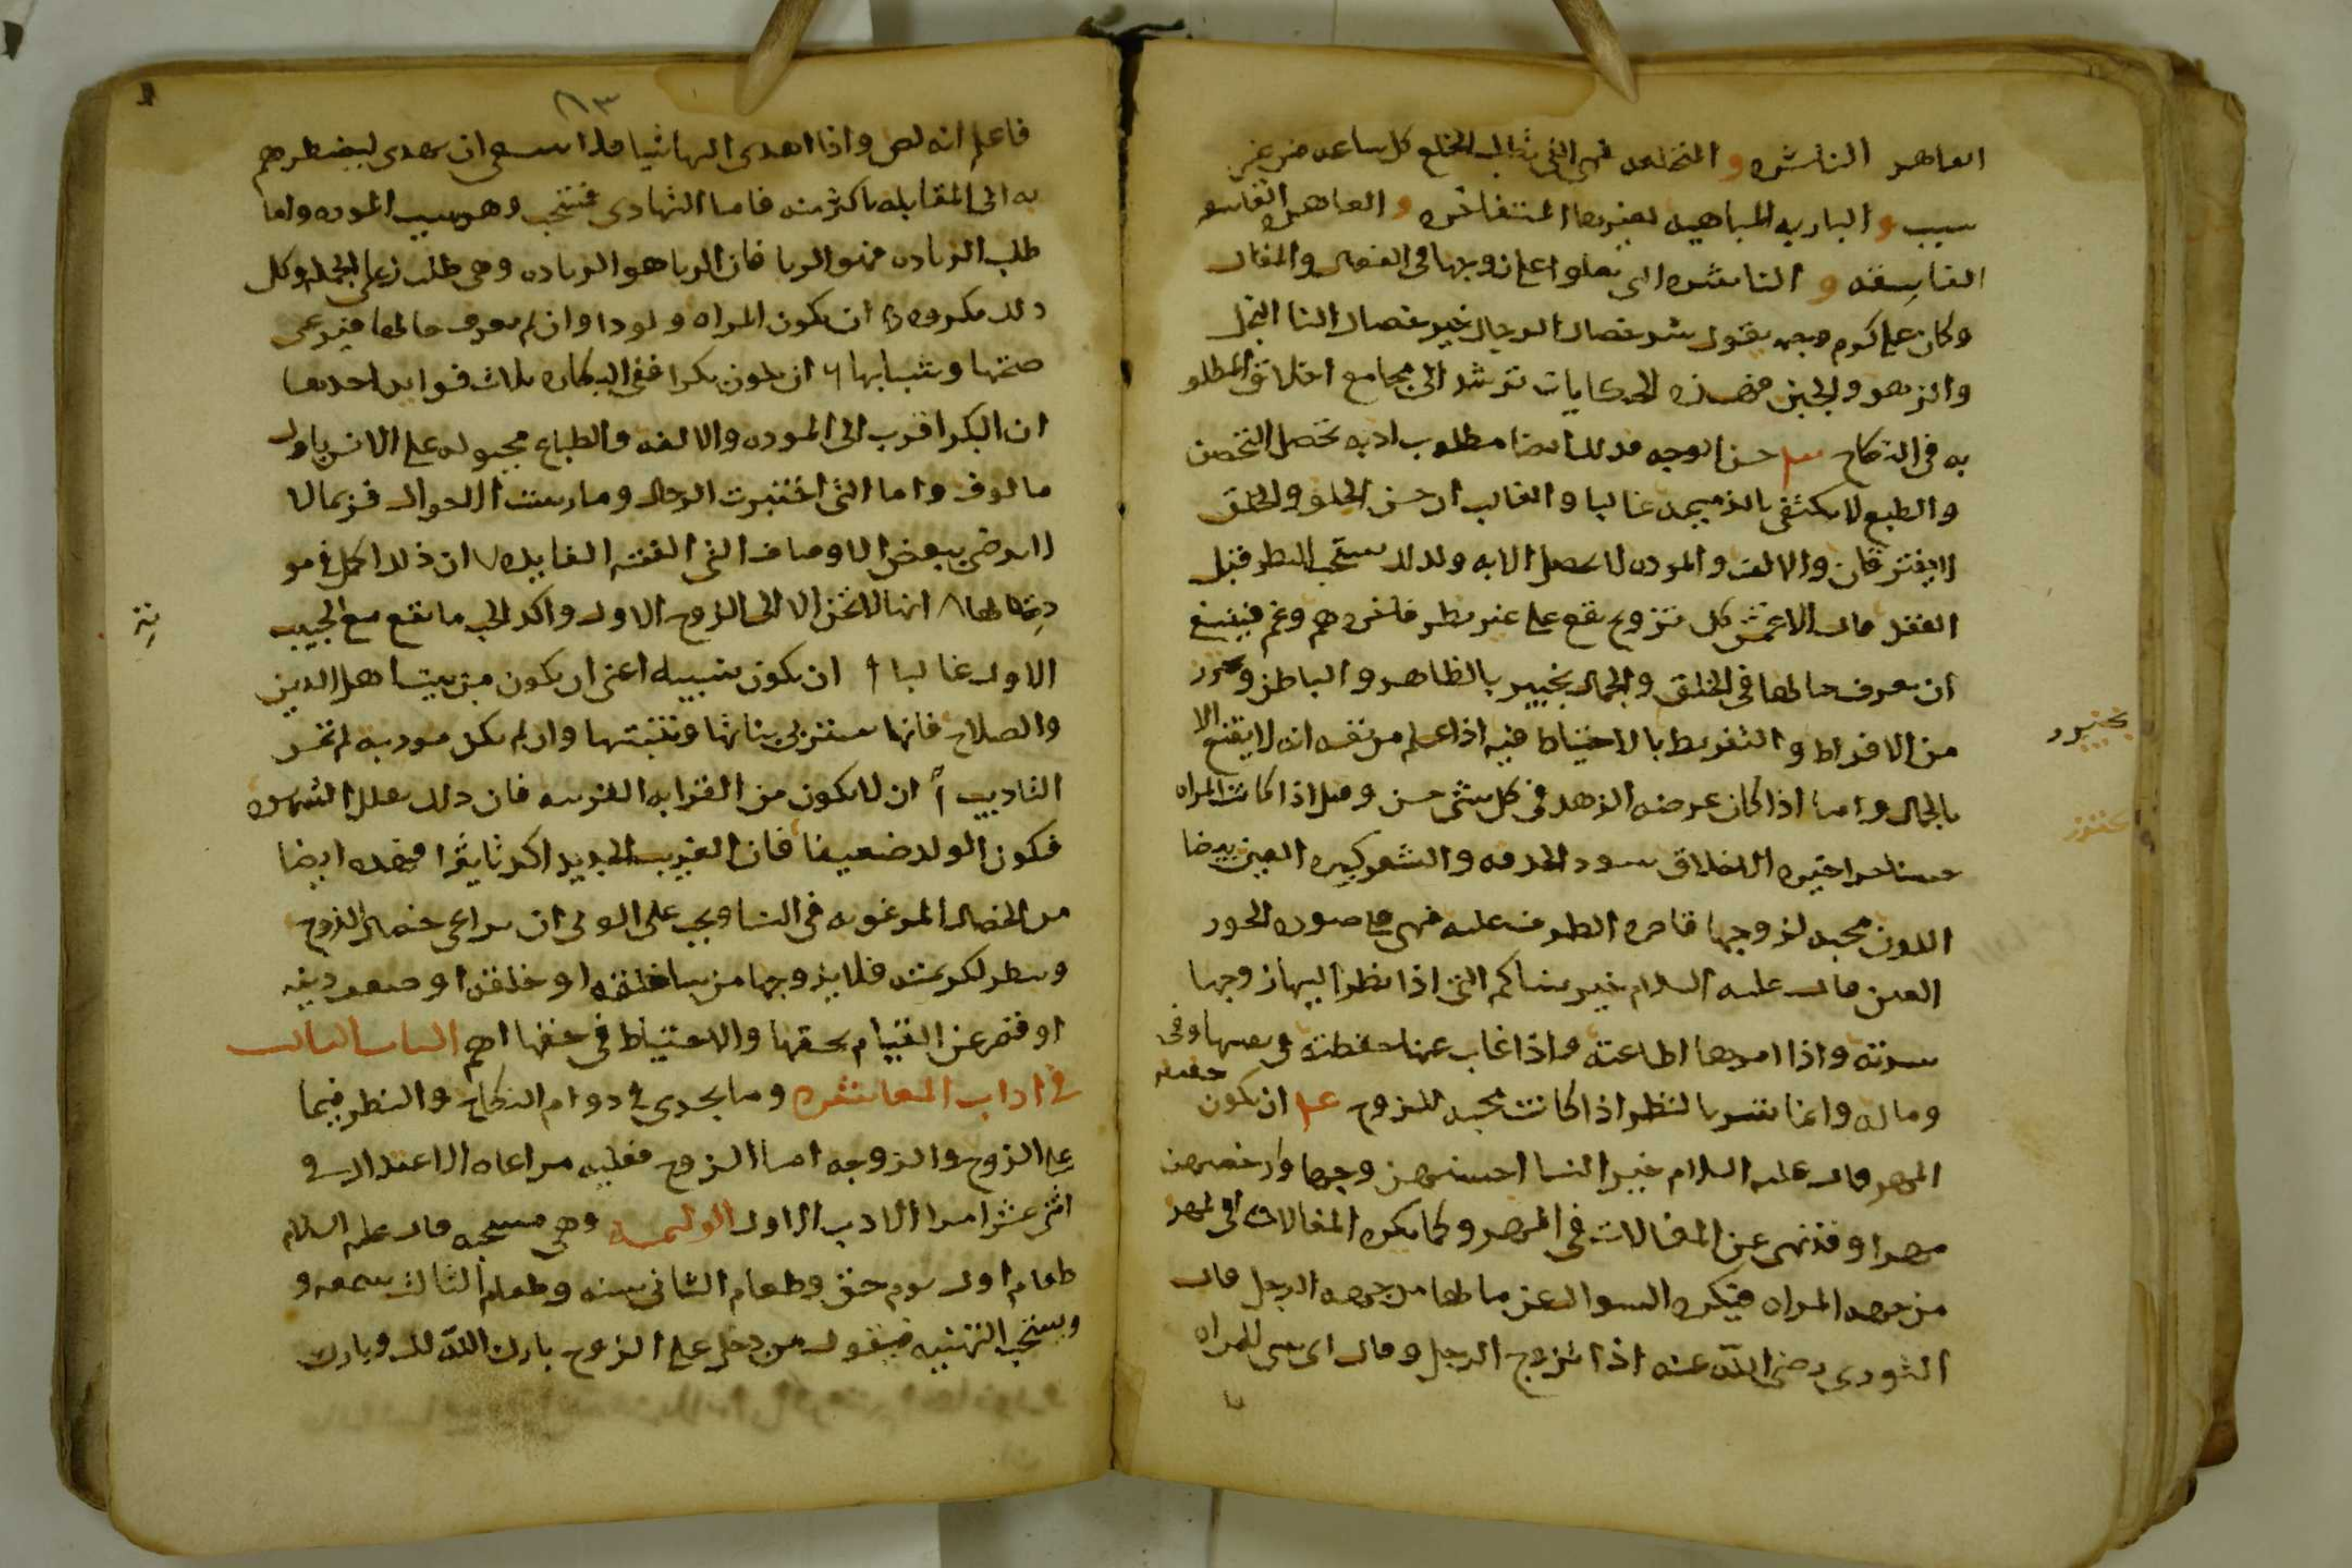 العاهره الناشزه و المختلعه فهي التي تطلب الخلع كل ساعه من غير
سبب و الباريه المباهيه لغيرها المتفاخره و العاهره الفاسقه
الفاسقه و الناشزه التي تعلوا على زوجها في الفعال والمقال
وكان على كرم وجهه يقول شر خصال الرجال خير خصال النسا البخل
والزهو والجبن فهذه الحكايات ترشد الى مجامع اخلاق المطلو
به في النكاح حسن الوجه فذلك ايضا مطلوب اذ به تحصل التحصن
والطبع لا يكتفى بالذميمه غالبا والغالب ان حسن الخلق والخلق
لا يفترقان والالف والموده لا تحصل الا به ولذلك يستحب النظر قبل
العقد قال الاعمش كل تزويج يقع على غير نظر فاخره هم وغم فينبغي
ان يعرف حالها في الخلق والجمال بخبير بالظاهر والباطن
من الافراط والتفريط بالاحتياط فيه اذا علم من نفسه انه لا يقنع الا
بالجمال واما اذا كان غرضه الزهد في كل شي حسن وقيل اذا كانت المراه
حسنا خيره الاخلاق سود الحدقه والشعر كبيره العين بيضا
اللون محبه لزوجها قاصره الطرف عليه فهي على صوره الحور
العين قال عليه السلام خير نسائكم التي اذا نظر اليها زوجها
سرته واذا امرها اطاعته واذا غاب عنها حفظته في نفسها وفي
وماله وانما يسر بالنظر اذا كانت محبه للزوج ان تكون
خفيفه
المهر قال عليه السلام خير النسا احسنهن وجوها وارخصهن
مهرا وقد نهى عن المغالات في المهر وكما يكره المغالات في المهر
من جهه المراه فيكره السوال عن مالها من جهه الرجل قال
الثوري رضي الله عنه اذا تزوج الرجل وقال اي شي للمراه
بخبير
٨٣
فاعلم انه لص واذا اهدى اليها شيا فلا ينبغي ان يهدى ليضطرهم
به الى المقابله باكثر منه فاما التهادى فمستحب وهو سبب الموده واما
طلب الزياده فهو الربا فان الربا هو الزياده وهي طلب زياده على الجمله وكل
ذلك مكروه ان تكون المراه ولودا وان لم يعرف حالها فيراعى
صحتها وشبابها ٦ ان تكون بكرا ففي البكاره ثلاث فوايد احدها
ان البكر اقرب الى الموده والالفه والطباع مجبوله على الانس باول
مالوف واما التي اختبرت الرجال ومارست الاحوال فربما لا
لا ترضى ببعض الاوصاف التي الفته الفايده ان ذلك اكمل في مو
دته لها ٨ انها لا تحن الا الى الزوج الاول واكد الحب ما تقع مع الحبيب
الاول غالبا ان تكون نسيبه اعني ان تكون من بيت اهل الدين
والصلاح فانها ستربي بناتها وبنيها وان لم تكن مودبه لم تحسن
التاديب ان لا تكون من القرابه القريبه فان ذلك يقلل الشهوه
فيكون الولد ضعيفا فان الغريب الجديد اكد تاثيرا فهذه ايضا
من الخصال المرغوبه في النسا ويجب على الولي ان يراعى خصال الزوج
وينظر لكريمته فلا يزوجها من ساء خلقه او خلقه او ضعف دينه
او قصر عن القيام بحقها والاحتياط في حقها اهم الباب الثالث
في اداب المعاشره وما يجرى في دوام النكاح والنظر فيما
على الزوج والزوجه اما الزوج فعليه مراعاه الاعتدال في
اثنى عشر امرا الادب الاول الوليمه وهي مستحبه قال عليه السلام
طعام اول يوم حق وطعام الثاني سنه وطعام الثالث سمعه و
ويستحب التهنيه فيقول من دخل على الزوج بارك الله لك وبارك